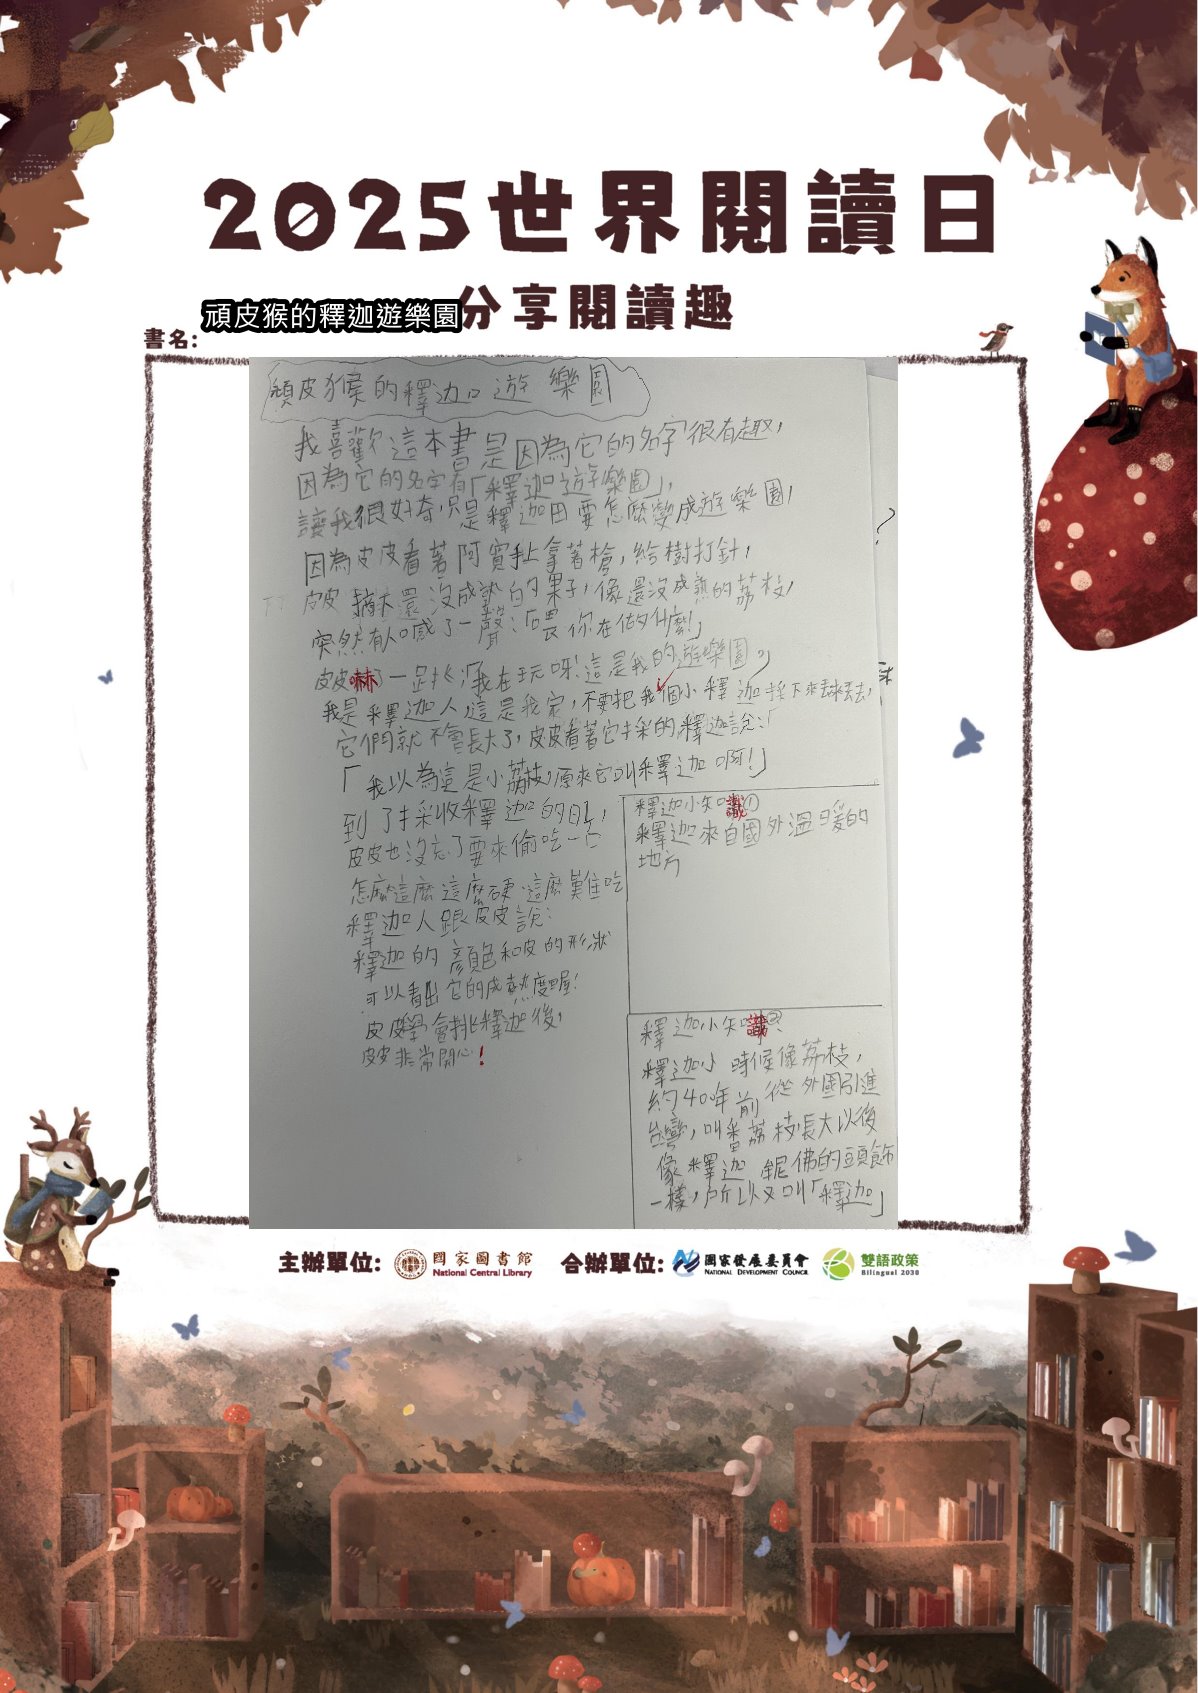 2025世界閱讀日
分享閱讀趣
書名:
頑皮猴的釋迦遊樂園
頑皮猴的釋迦遊樂園
我喜歡這本書是因為它的名字很有趣,
因為它的名字有「釋迦遊樂園」,
讓我很好奇,只是釋迦田要怎麼變成遊樂園,
因為皮皮看著阿賓手上拿著槍,給樹打針,
皮皮摘還沒成熟的果子,像還沒成熟的荔枝,
突然有人喊了一聲:「喂你在做什麼!」
皮皮嚇了一跳;「我在玩呀!這是我的遊樂園?」
我是釋迦人,這是我家,不要把我個小釋迦採下來丟來丟去,
它們就不會長大了,皮皮看著它採的釋迦說:「
「我以為這是小荔枝,原來它叫釋迦啊!」
到了採收釋迦的日,
皮皮也沒忘了要來偷吃一
怎麼這麼這麼硬這麼難吃
釋迦人跟皮皮說:
釋迦的顏色和皮的形狀
可以看出它的成熟度喔!
皮皮學會挑釋迦後,
皮皮非常開心!
釋迦小知識①
釋迦來自國外溫暖的
地方
釋迦小知識②:
釋迦小時候像荔枝,
約40年前從外國引進
台灣,叫番荔枝長大以後
像釋迦 佛的頭飾
一樣,所以又叫「釋迦」
主辦單位: 國家圖書館 National Central Library 合辦單位: 國家發展委員會 National Development Council 雙語政策 Bilingual 2030